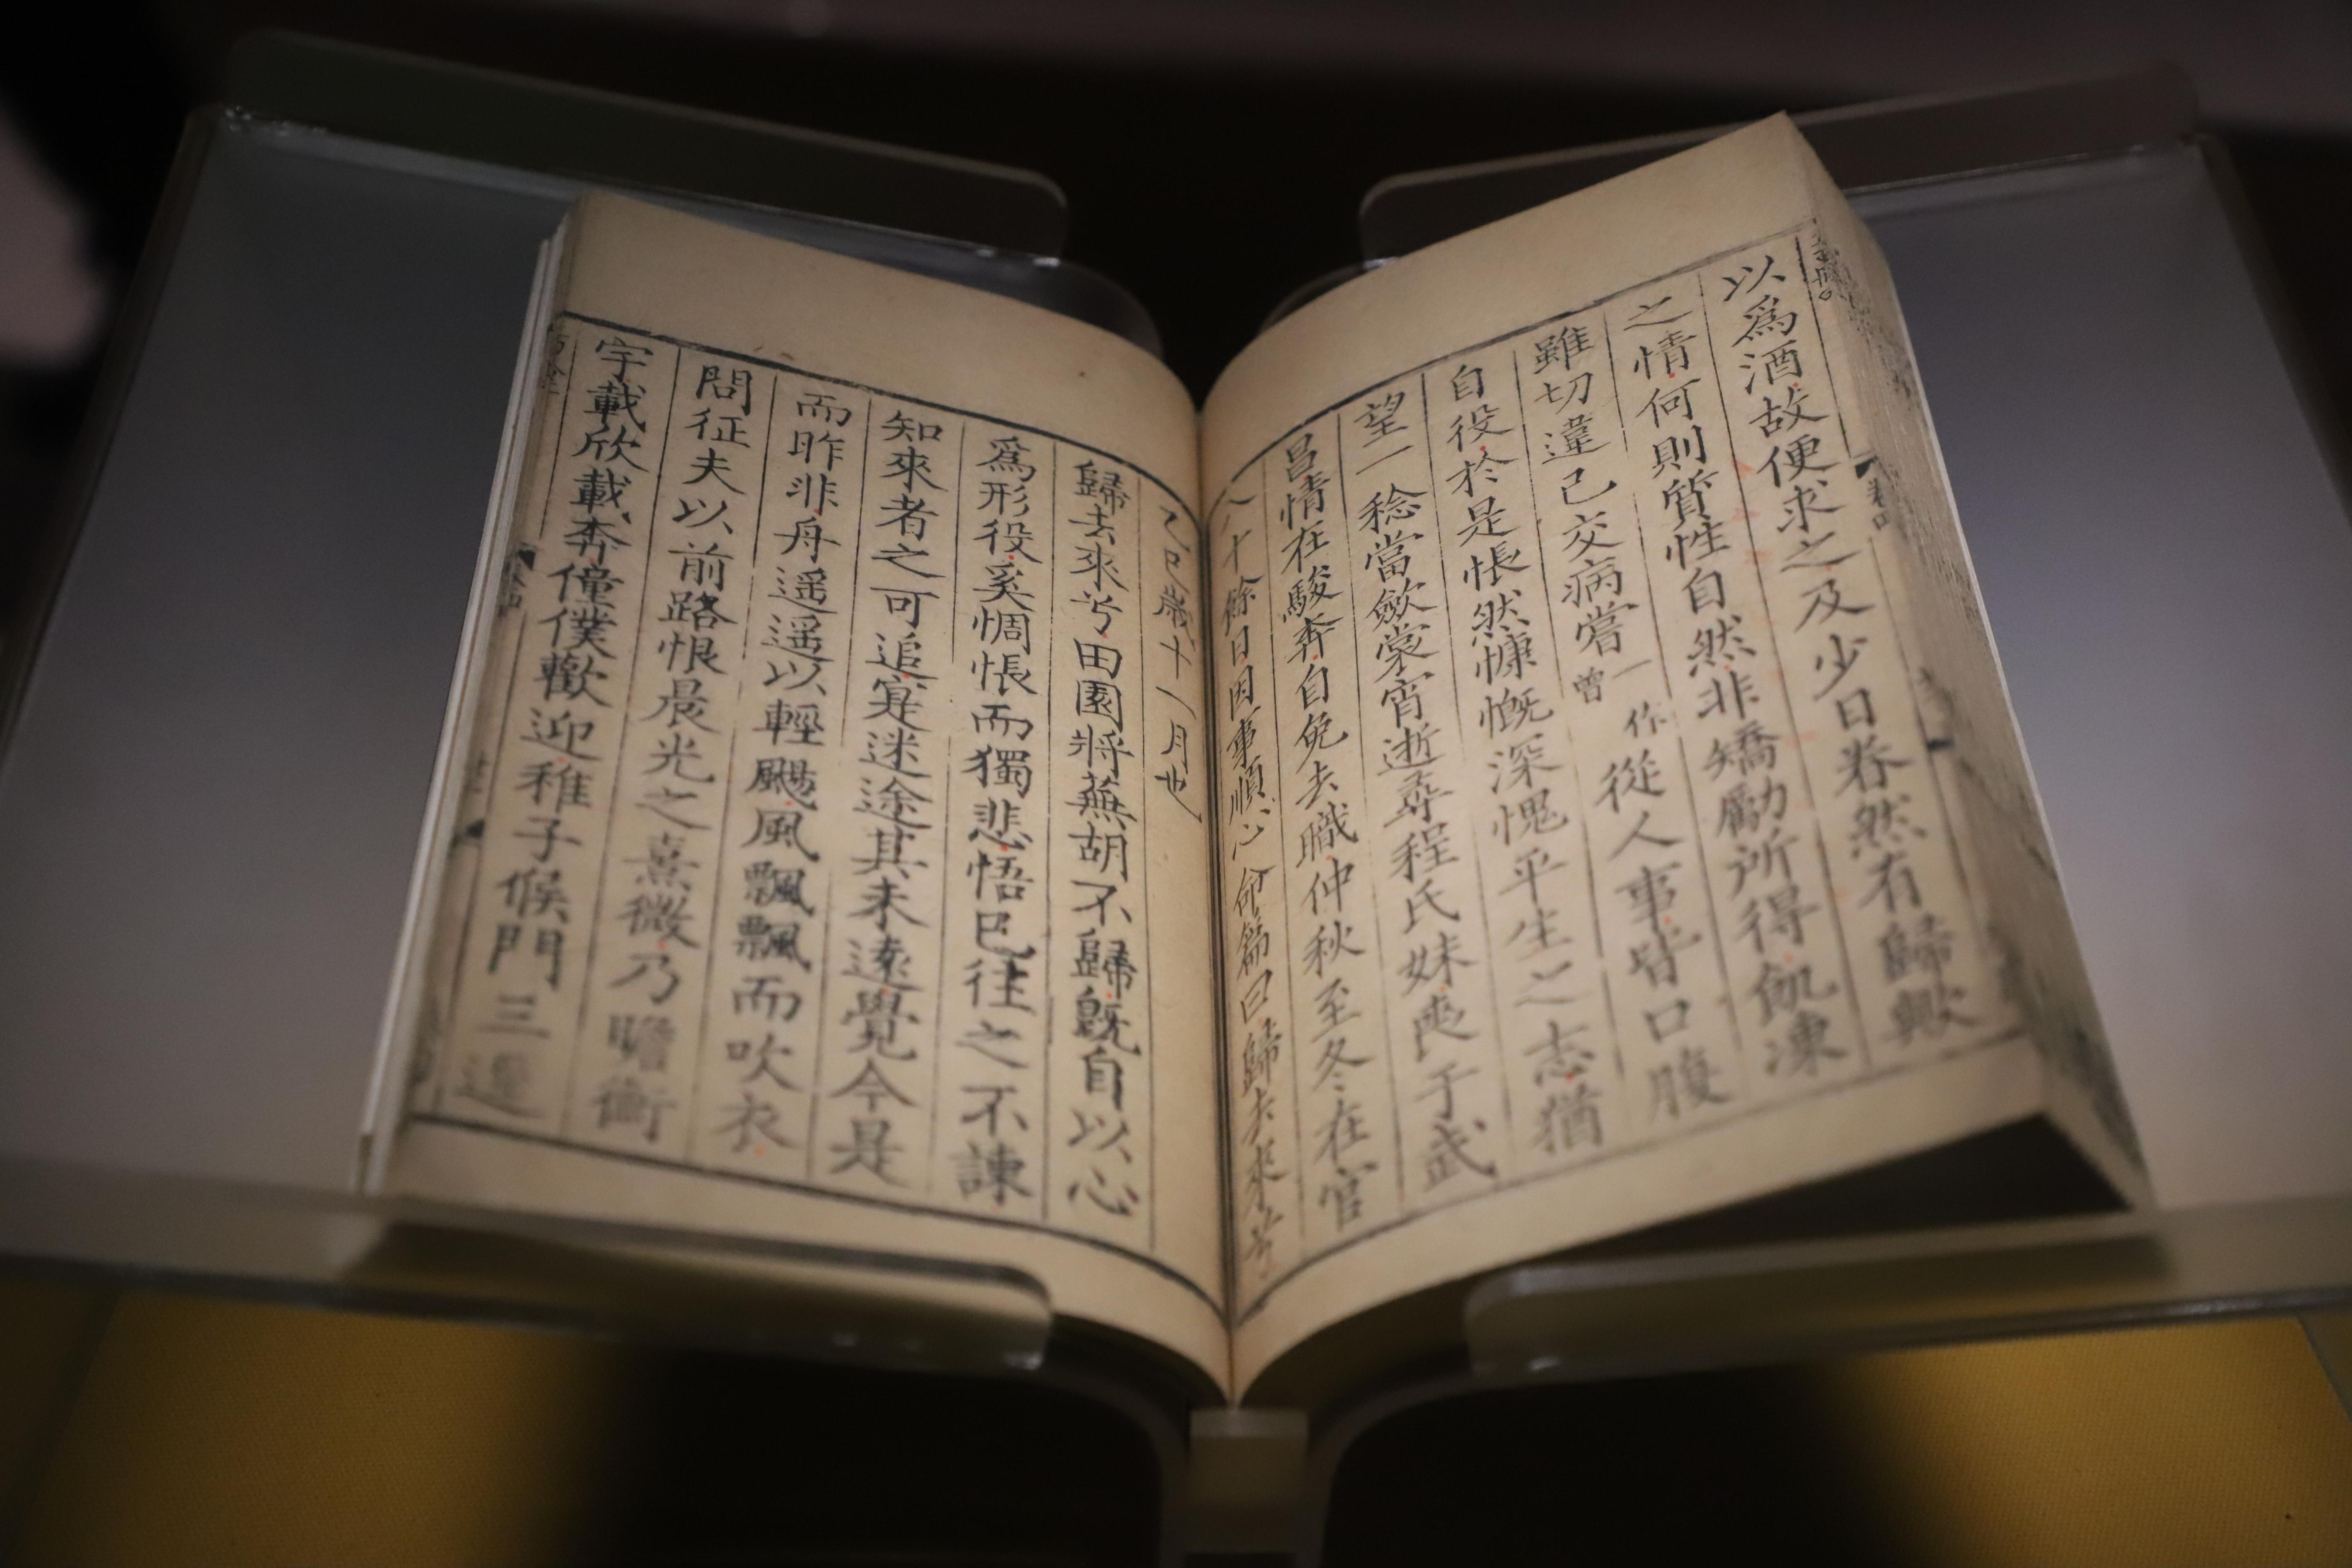 以爲酒故便求之及少日眷然有歸歟
之情何則質性自然非矯勵所得飢凍
雖切違己交病嘗一作曾從人事皆口腹
自役於是悵然慷慨深愧平生之志猶
望一稔當斂裳宵逝尋程氏妹喪于武
昌情在駿奔自免去職仲秋至冬在官
八十餘日因事順心命篇曰歸去來兮
乙巳歲十一月也
歸去來兮田園將蕪胡不歸旣自以心
爲形役奚惆悵而獨悲悟已往之不諫
知來者之可追寔迷途其未遠覺今是
而昨非舟遥遥以輕颺風飄飄而吹衣
問征夫以前路恨晨光之熹微乃瞻衡
宇載欣載奔僮僕歡迎稚子候門三逕